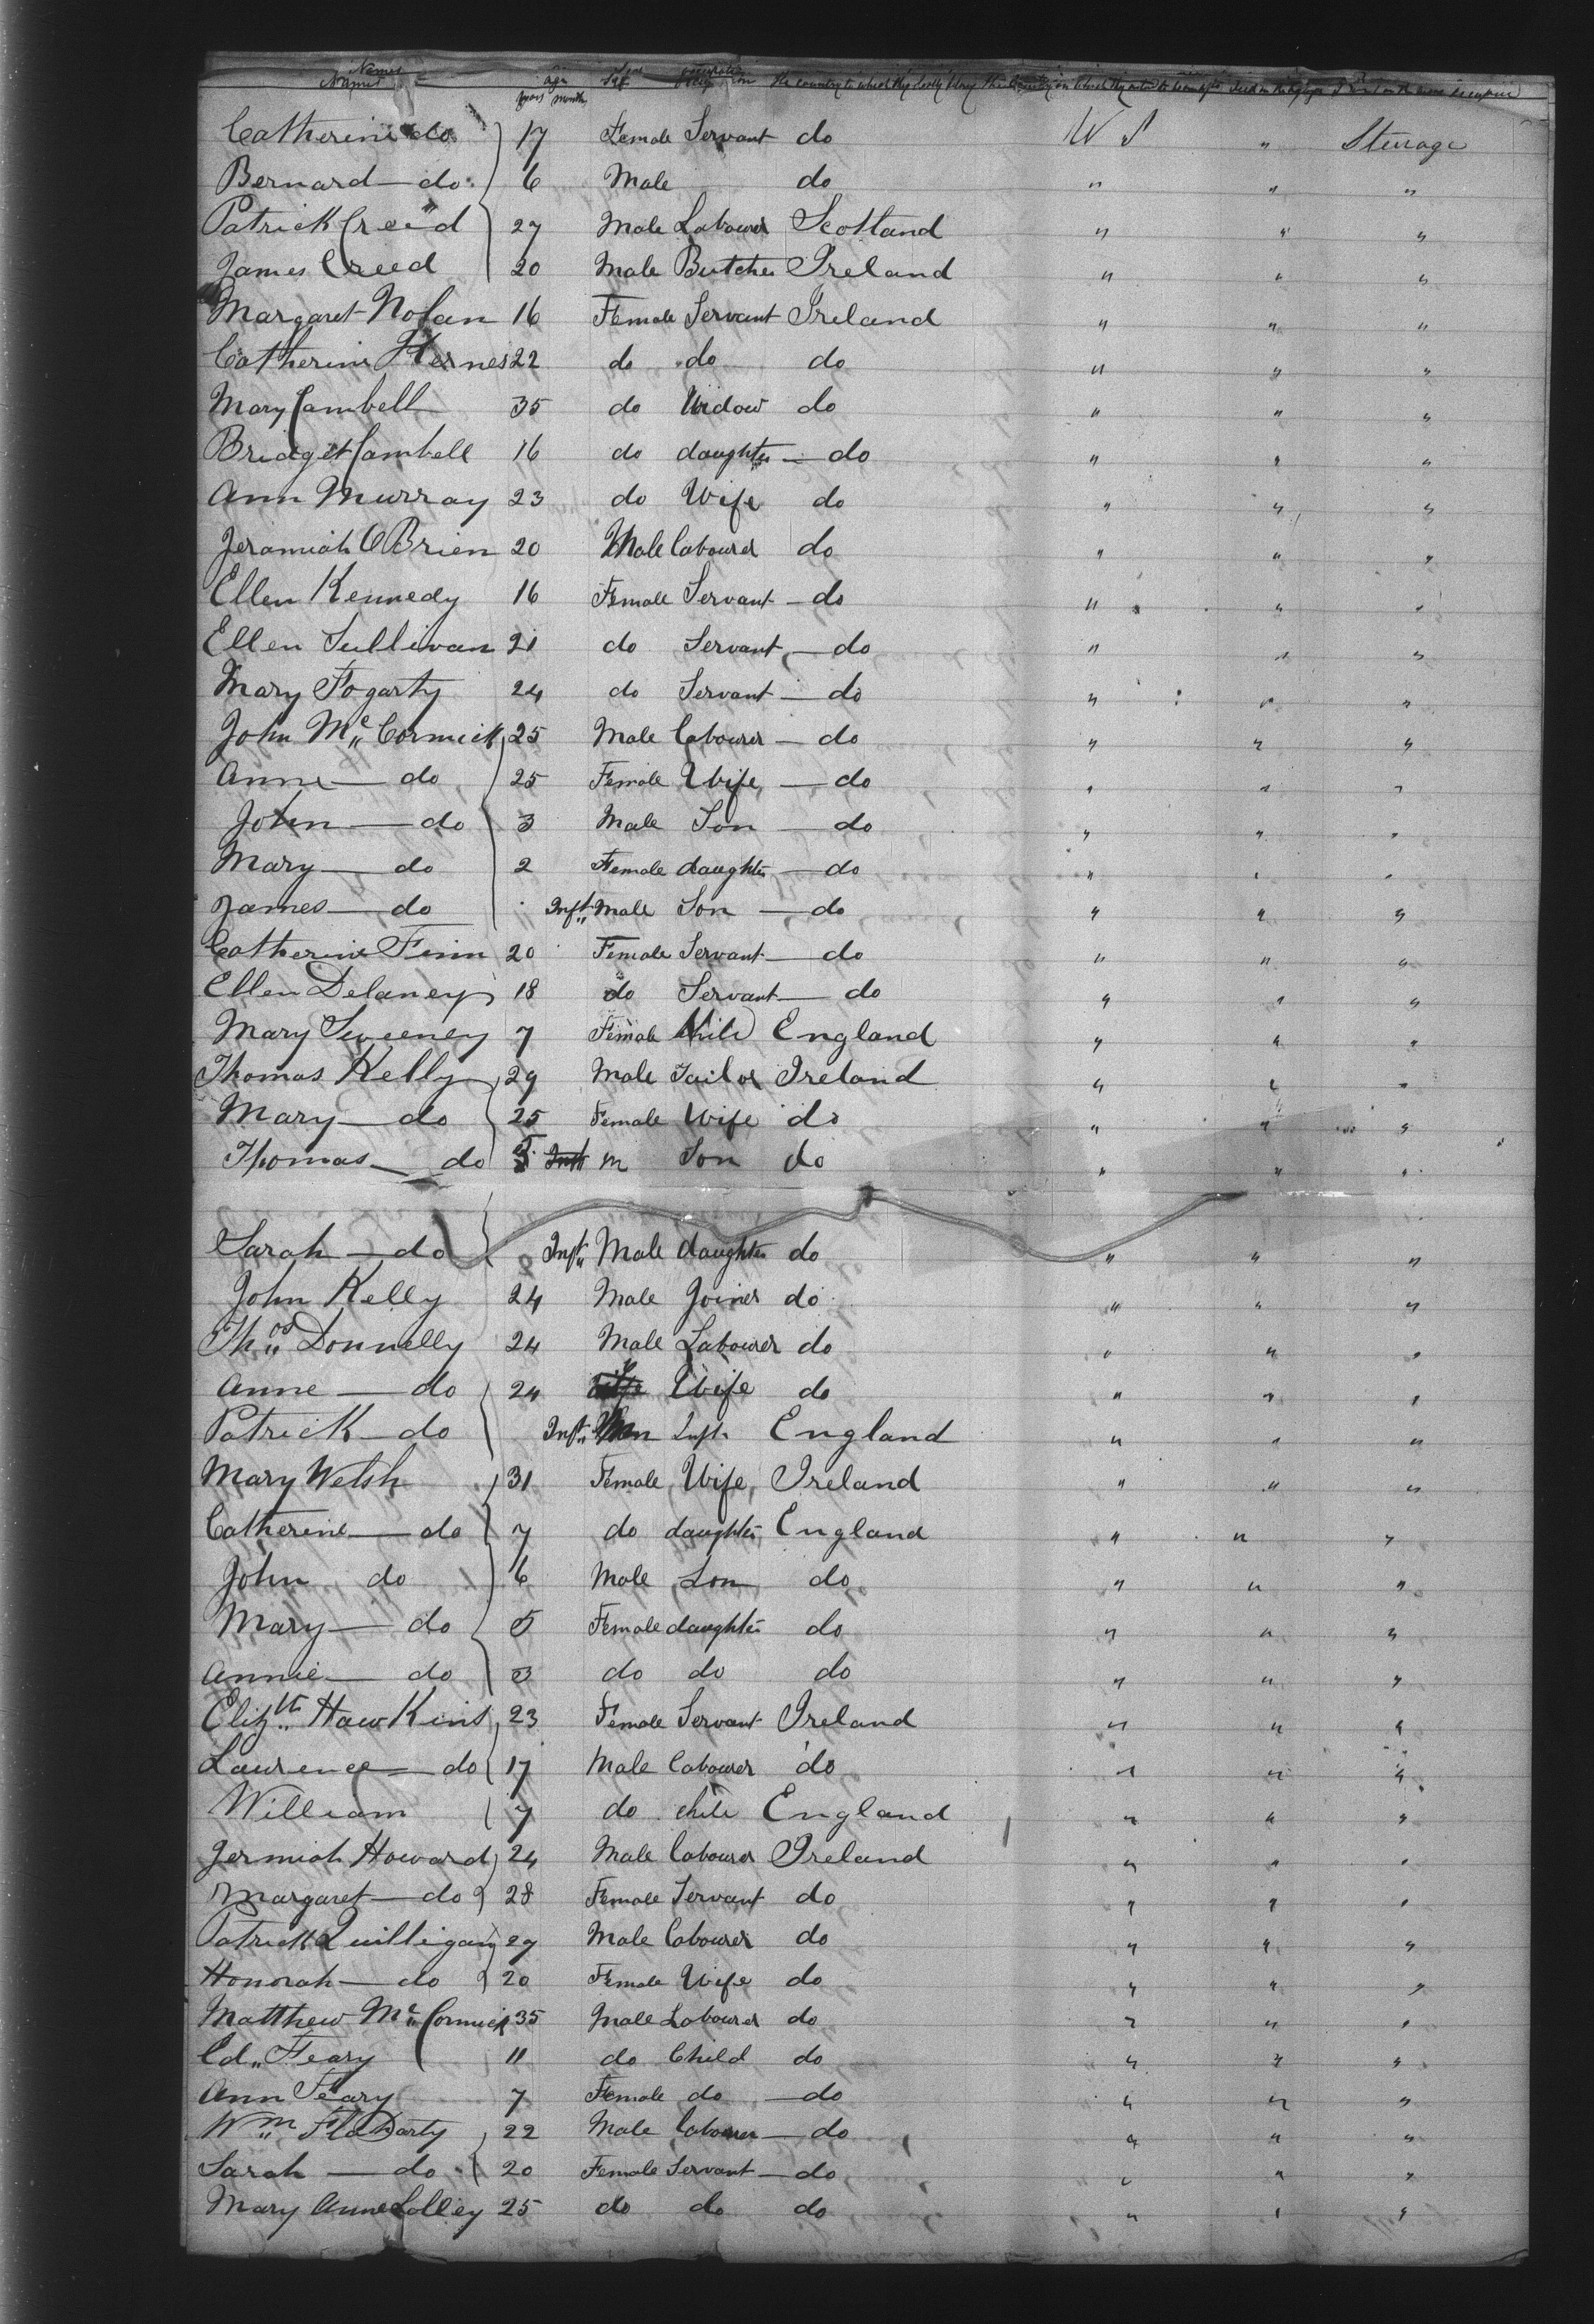 Names
Names age Sex occupation The country to which they severally belong The Country in which they intend to become
years months
Catherine do 17 Female Servant do U S " Steerage
Bernard do 6 Male do " " "
Patrick Creed 27 Male Labourer Scotland " " "
James Creed 20 Male Butcher Ireland " " "
Margaret Nolan 16 Female Servant Ireland " " "
Catherine 22 do do do " " "
Mary Cambell 35 do Widow do " " "
Bridget Cambell 16 do daughter do " " "
Ann Murray 23 do Wife do " " "
Jeramiah OBrien 20 Male Labourer do " " "
Ellen Kennedy 16 Female Servant do " " "
Ellen Sullivan 21 do Servant do " " "
Mary Fogarty 24 do Servant do " " "
John Mc Cormick 25 Male Labourer do " " "
Anne do 25 Female Wife do " " "
John do 3 Male Son do " " "
Mary do 2 Female daughter do " " "
James do Inft Male Son do " " "
Catherine Finn 20 Female Servant do " " "
Ellen Delaney 18 do Servant do " " "
Mary Sweeney 7 Female Child England " " "
Thomas Kelly 29 Male Tailor Ireland " " "
Mary do 25 Female Wife do " " "
Thomas do Inft m Son do " " "
Sarah do Inft Male daughter do " " "
John Kelly 24 Male Joiner do " " "
Thos Donnelly 24 Male Labourer do " " "
Anne do 24 Wife do " " "
Patrick do Inft Inft England " " "
Mary Welsh 31 Female Wife Ireland " " "
Catherine do 7 do daughter England " " "
John do 6 Male Son do " " "
Mary do 5 Female daughter do " " "
Annie do 3 do do do " " "
Elizth Hawkins 23 Female Servant Ireland " " "
Lawrence do 17 Male Labourer do " " "
William 7 do child England " " "
Jermiah Howard 24 Male Labourer Ireland " " "
Margaret do 28 Female Servant do " " "
Patrick Quilligan 29 Male Labourer do " " "
Honorah do 20 Female Wife do " " "
Matthew Mc Cormick 35 Male Labourer do " " "
Ed Feary 11 do Child do " " "
Ann Feary 7 Female do do " " "
Wm Flaharty 22 Male Labourer do " " "
Sarah do 20 Female Servant do " " "
Mary Anne Lolley 25 do do do " " "